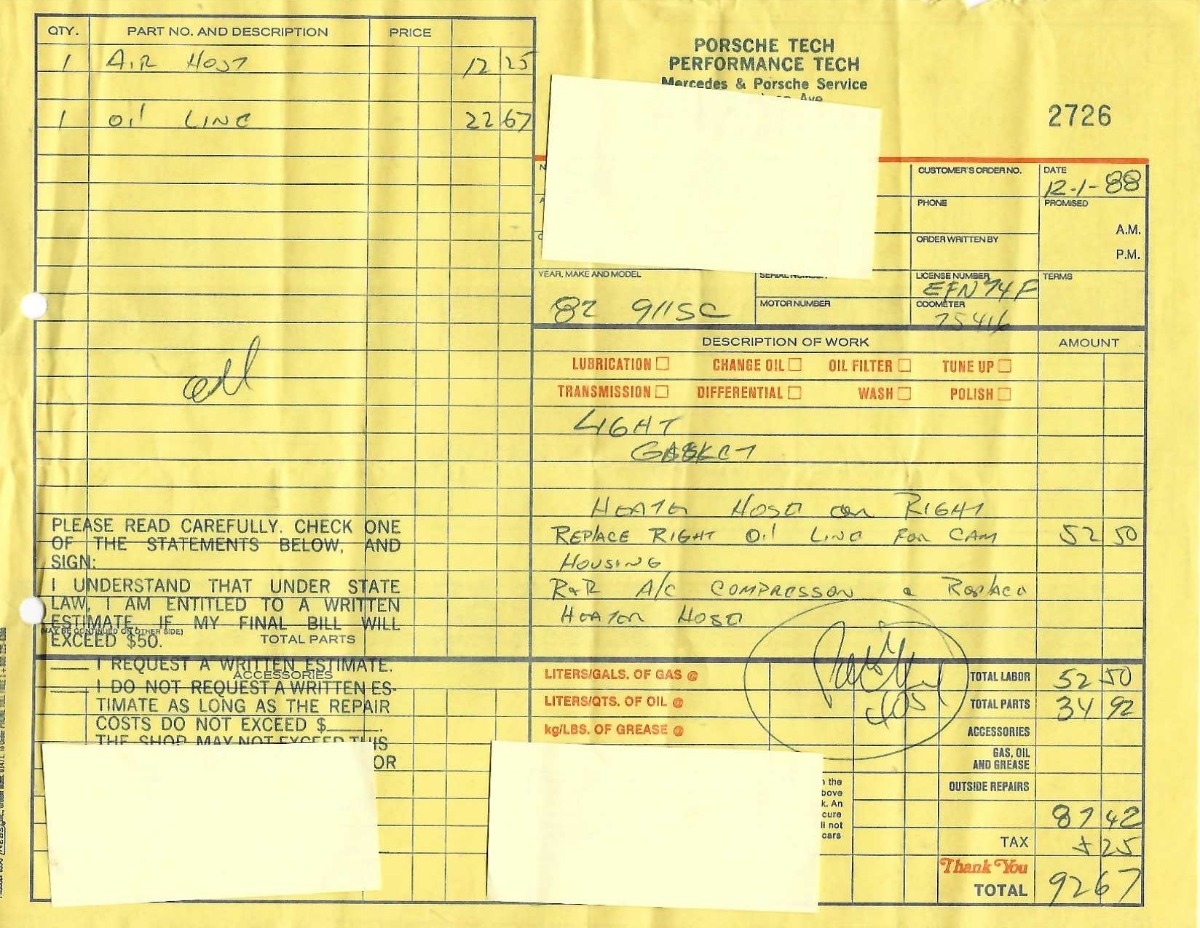 QTY. PART NO. AND DESCRIPTION PRICE
1 AIR HOST 12 25
1 OIL LINE 22 67
PORSCHE TECH
PERFORMANCE TECH
Mercedes & Porsche Service
Ave
2726
CUSTOMER'S ORDER NO.
DATE
12-1-88
PHONE
PROMISED
A.M.
ORDER WRITTEN BY
P.M.
YEAR, MAKE AND MODEL
82 911SC
SERIAL NUMBER
MOTOR NUMBER
LICENSE NUMBER
EFN74F
ODOMETER
75416
TERMS
DESCRIPTION OF WORK AMOUNT
LUBRICATION CHANGE OIL OIL FILTER TUNE UP
TRANSMISSION DIFFERENTIAL WASH POLISH
LIGHT
GASKET
HEATER HOSE on RIGHT
REPLACE RIGHT OIL LINE FOR CAM 52 50
HOUSING
R&R A/C COMPRESSOR & REPLACE
HEATER HOSE
PLEASE READ CAREFULLY. CHECK ONE
OF THE STATEMENTS BELOW, AND
SIGN:
I UNDERSTAND THAT UNDER STATE
LAW, I AM ENTITLED TO A WRITTEN
ESTIMATE IF MY FINAL BILL WILL
EXCEED $50.
(MAY BE CONTINUED ON OTHER SIDE)
TOTAL PARTS
I REQUEST A WRITTEN ESTIMATE.
ACCESSORIES
I DO NOT REQUEST A WRITTEN ES-
TIMATE AS LONG AS THE REPAIR
COSTS DO NOT EXCEED $
THE SHOP MAY NOT EXCEED THIS
OR
LITERS/GALS. OF GAS @
LITERS/QTS. OF OIL @
kg/LBS. OF GREASE @
n the
bove
k. An
cure
ll not
cars
TOTAL LABOR 52 50
TOTAL PARTS 34 92
ACCESSORIES
GAS, OIL
AND GREASE
OUTSIDE REPAIRS
87 42
TAX 5 25
Thank You
TOTAL 92 67